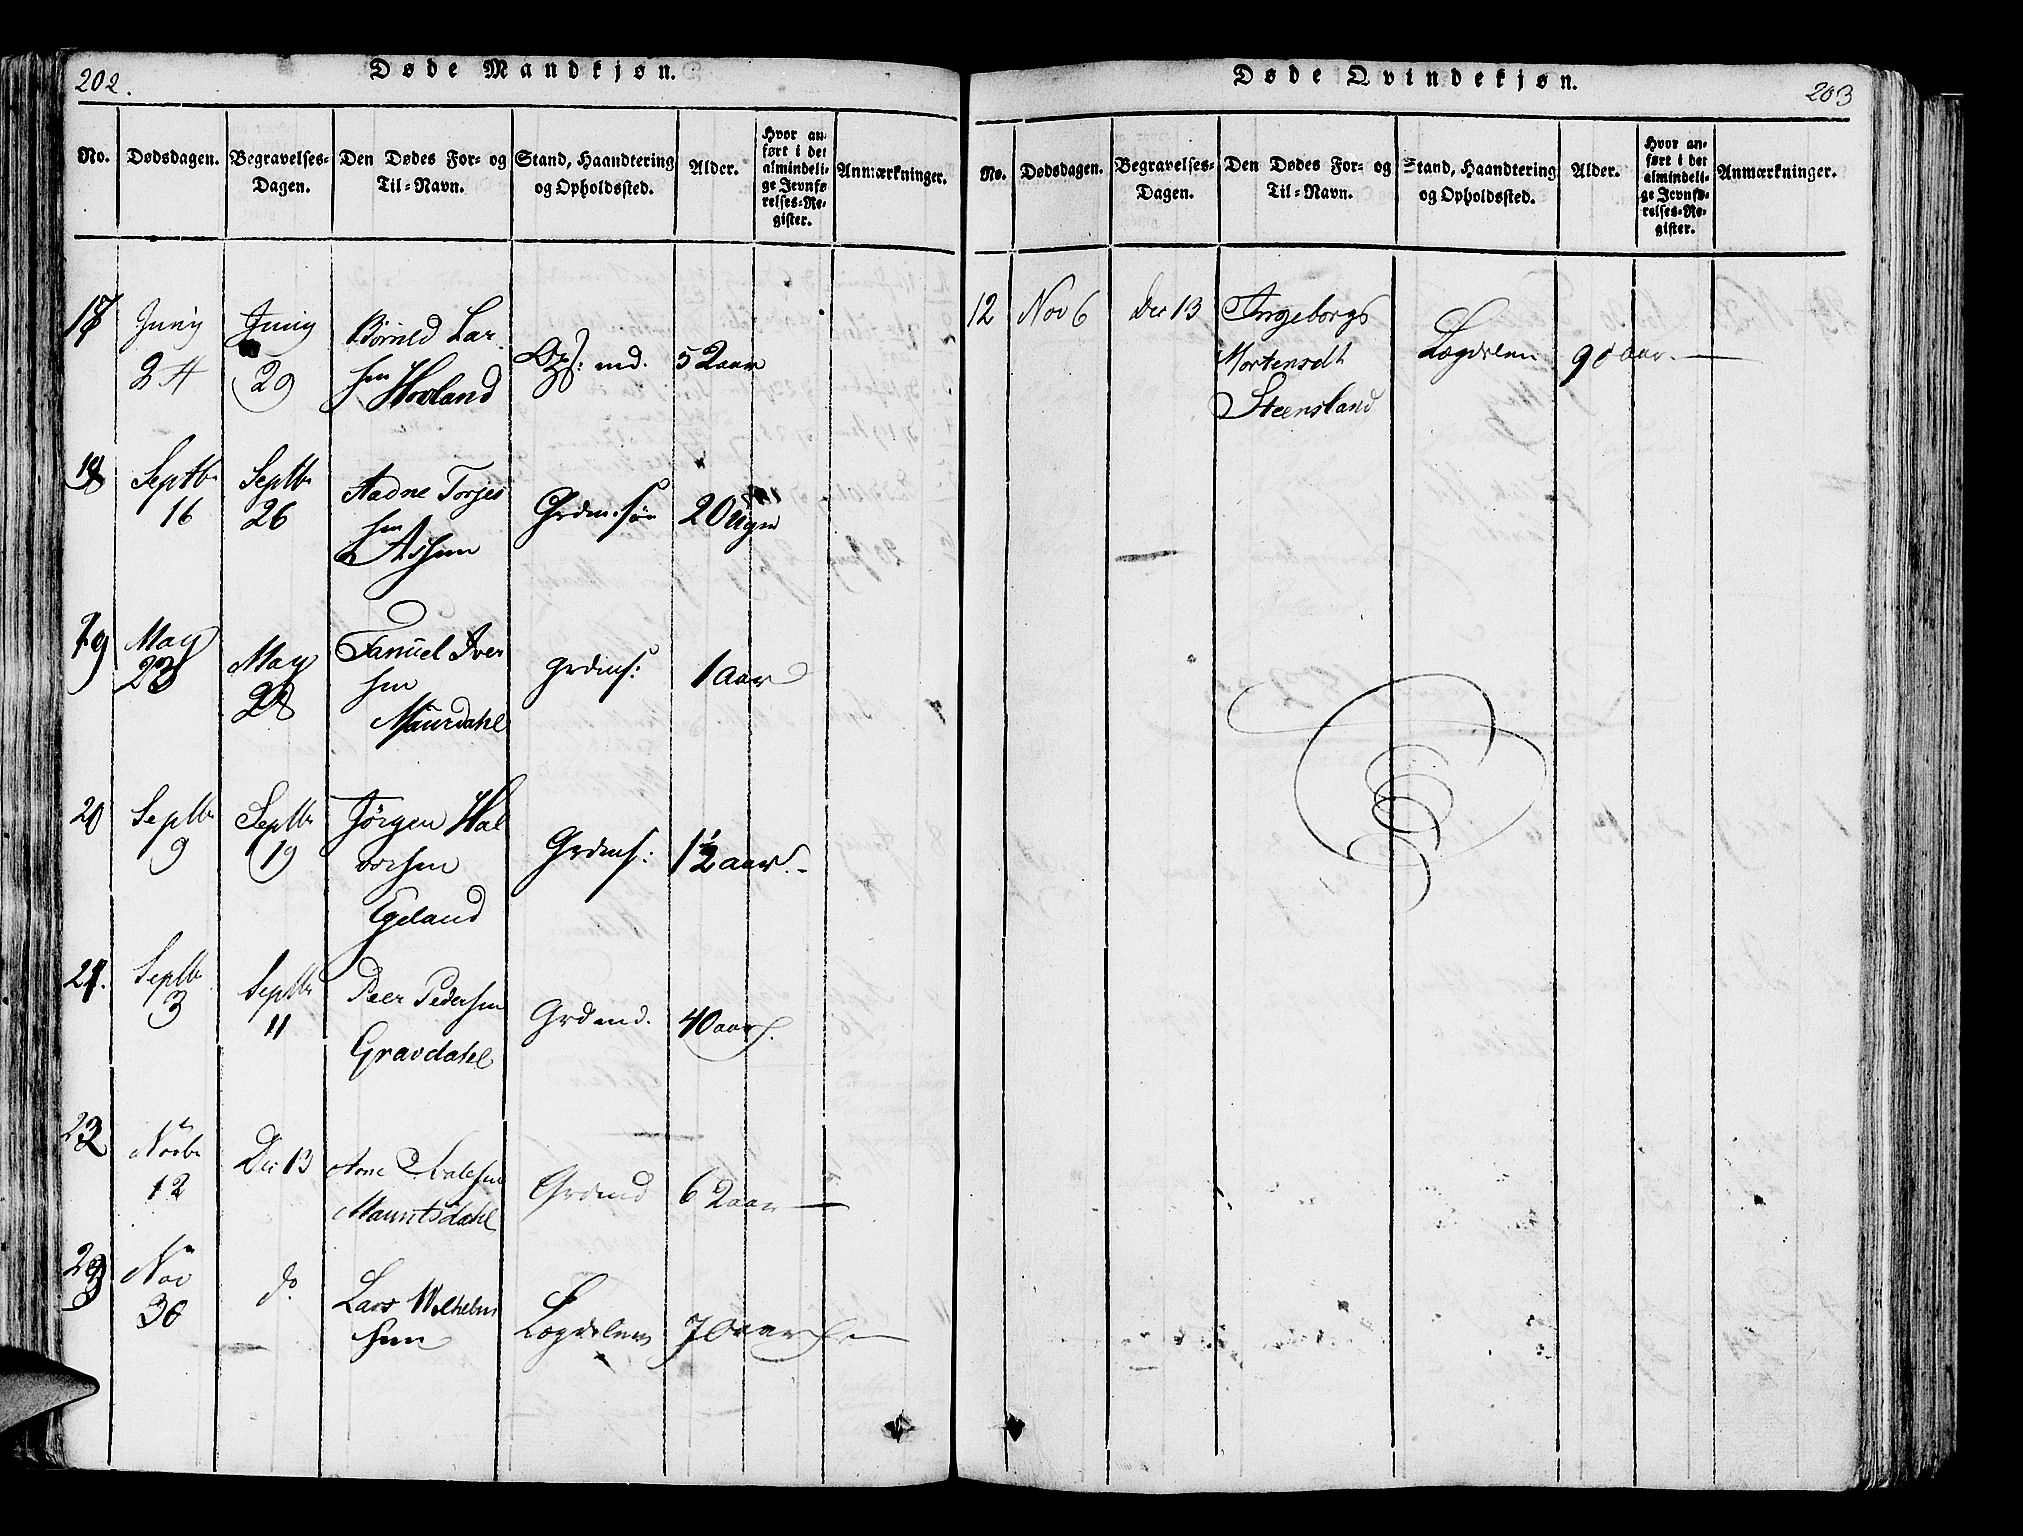 202.
Døde Mandkjøn.
No.
Dødsdagen.
Begravelses-
Dagen.
Den Dødes For- og
Til-Navn.
Stand, Haandtering
og Opholdssted.
Alder.
Hvor an-
ført i det
almindeli-
ge Jevnfø-
relses-Re-
gister.
Anmærkninger.
17
Juny
24
Juny
29
Lar-
sen Hovland
md.
52 aar
18
Septbr
16
Septbr
26
Aadne Torjes
sen
Grdm. søn
20 Uger
19
May
23
May
28
Samuel Iver
sen
Maurdahl
grdms:
1 Aar
20
Septbr
9
Septbr
19
Jörgen Hal
vorsen
Egeland
Grdms:
1½ aar. -
21.
Septbr
3
Septbr
11
Peer Pedersen
Gravdahl
Grdmd.
40 aar.
22
Novbr
12
Dec 13
Arne
Mauritsdahl
Grdmd
62 aar —
23
Nov
30
do
Lars Wilhelm
sen
Lægdslem
70 aar —
203
Døde Qvindekjøn.
No.
Dødsdagen.
Begravelses-
Dagen.
Den Dødes For- og
Til-Navn.
Stand, Haandtering
og Opholdssted.
Alder.
Hvor an-
ført i det
almindeli-
ge Jevnfø-
relses-Re-
gister.
Anmærkninger.
12
Nov 6
Dec 13
Ingeborg
Mortensdt
Steensland
Lægdslem
90 aar. —